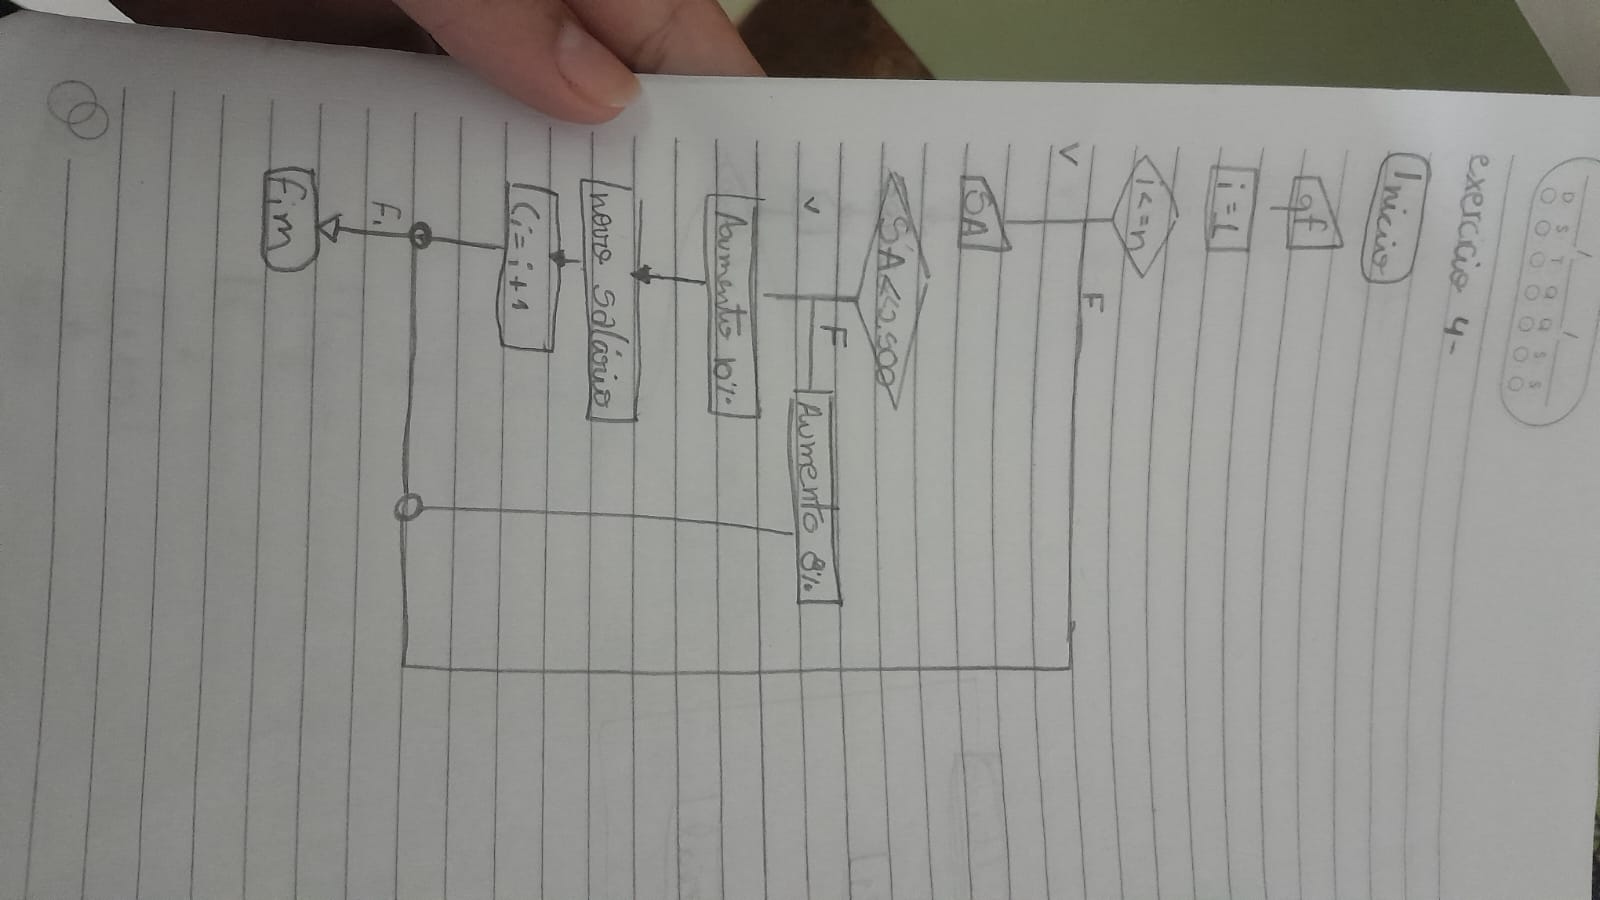 D S T Q Q S S
exercício 4-
Início
qf
i=1
i<=n
V F
SA
SA<2.500
V F
Aumento 8%
Aumento 10%
novo salário
i=i+1
F1
fim